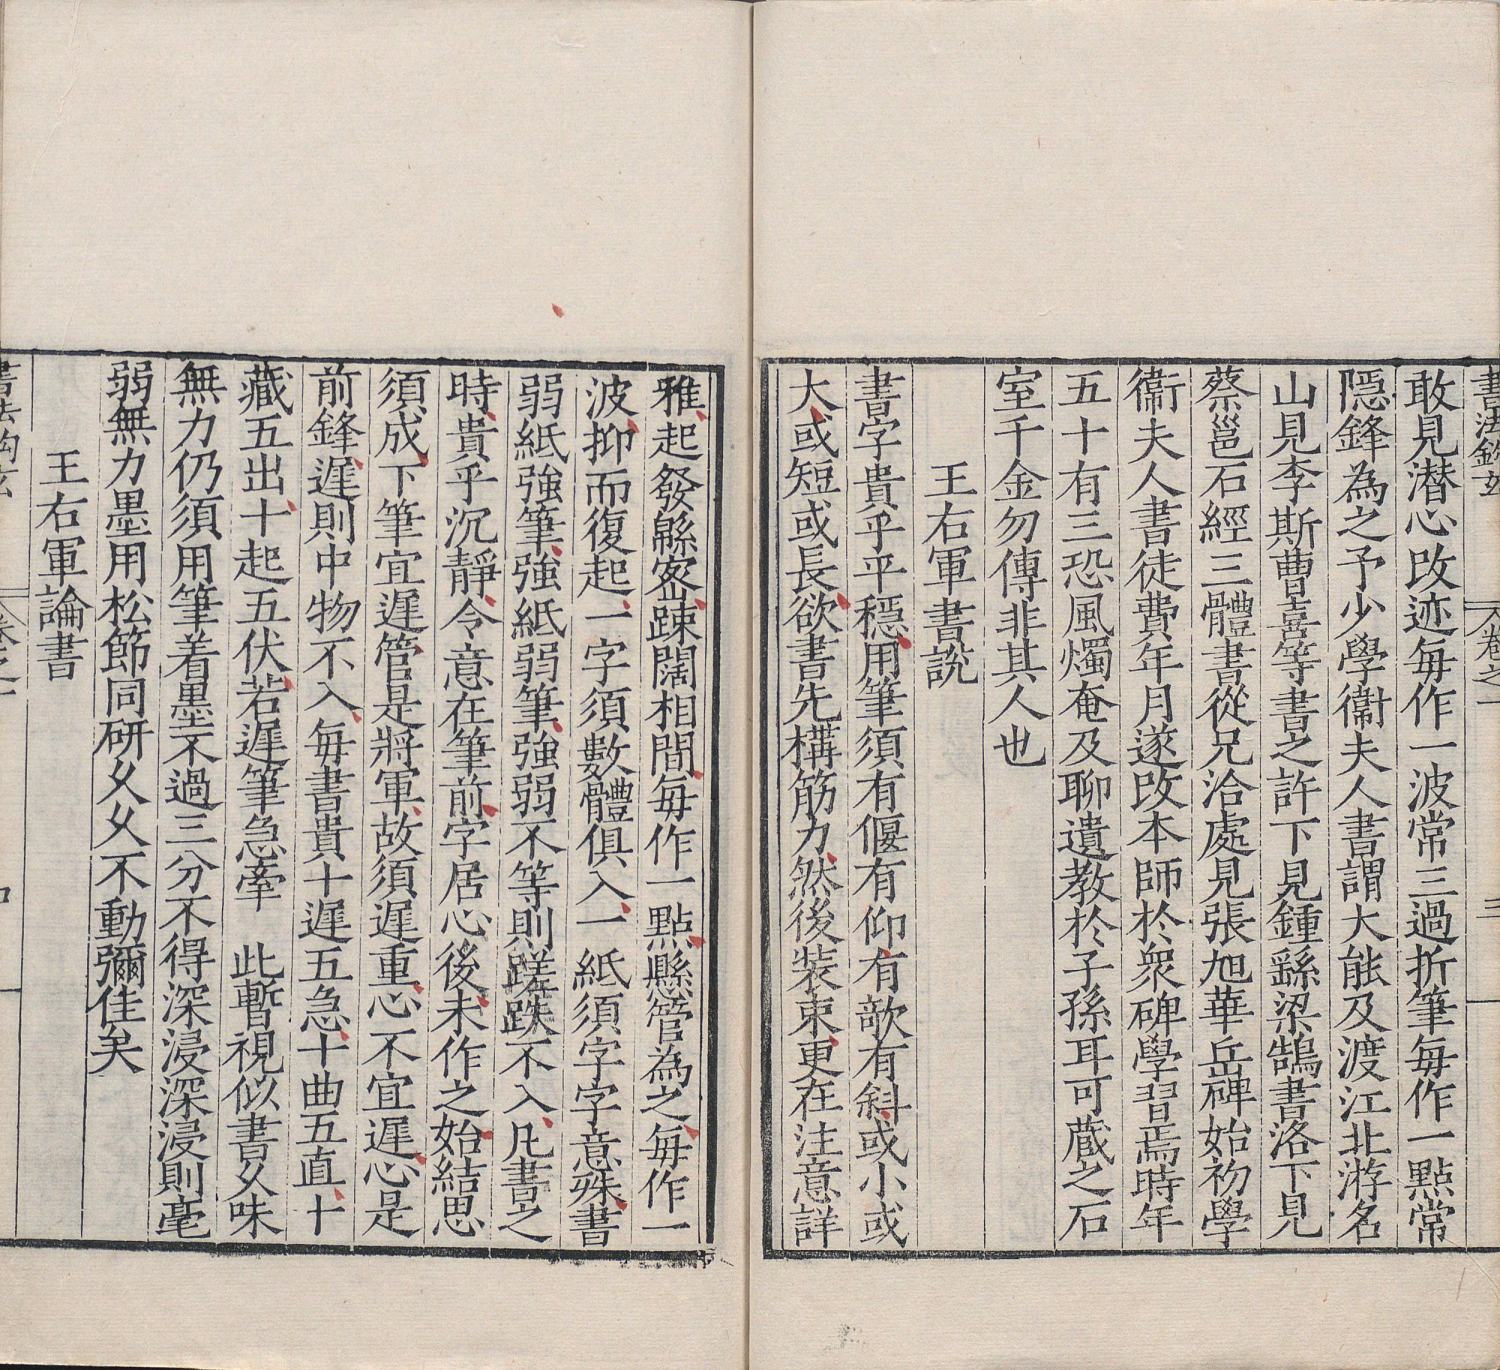 書法鉤玄 卷之一 三
敢見潛心改迹每作一波常三過折筆每作一點常
隱鋒為之予少學衞夫人書謂大能及渡江北游名
山見李斯曹喜等書之許下見鍾繇梁鵠書洛下見
蔡邕石經三體書從兄洽處見張旭華岳碑始初學
衞夫人書徒費年月遂改本師於衆碑學習焉時年
五十有三恐風燭奄及聊遺教於子孫耳可蔵之石
室千金勿傳非其人也
王右軍書說
書字貴乎平穩用筆須有偃有仰有欹有斜或小或
大或短或長欲書先構筋力然後装束更在注意詳
雅起發緜密踈闊相間每作一點懸管為之每作一
波抑而復起一字須數體俱入一紙須字字意殊書
弱紙強筆強紙弱筆強弱不等則蹉跌不入凡書之
時貴乎沉靜令意在筆前字居心後未作之始結思
須成下筆宜遲管是將軍故須遲重心不宜遲心是
前鋒遲則中物不入每書貴十遲五急十曲五直十
藏五出十起五伏若遲筆急牽 此暫視似書久味
無力仍須用筆着墨不過三分不得深浸深浸則毫
弱無力墨用松節同研久久不動彌佳矣
王右軍論書
書法鉤玄 卷之一 四